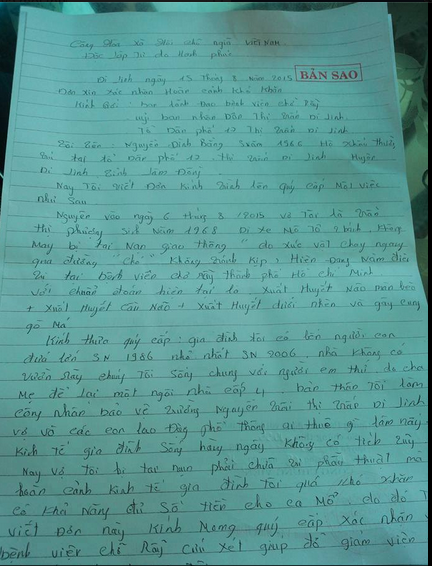 Cộng Hòa Xã Hội chủ nghĩa Việt Nam
Độc lập Tự do Hạnh phúc
Di Linh ngày 15 Tháng 8 năm 2015
BẢN SAO
Đơn xin xác nhận Hoàn cảnh Khó Khăn
Kính Gửi: Ban lãnh đạo bệnh viện chợ Rẫy
Uỷ ban nhân dân Thị Trấn Di Linh
Tổ Dân phố 17 Thị Trấn Di Linh
Tôi Tên: Nguyễn Đình Bằng sinh 1966 Hộ khẩu thường
Trú tại tổ Dân phố 17 Thị Trấn Di Linh Huyện
Di Linh Tỉnh Lâm Đồng
Nay Tôi Viết Đơn Kính Trình lên quý cấp Một việc
như sau
Nguyên vào ngày 6 tháng 8 /2015 vợ Tôi là Trần
thị phương Sinh Năm 1968 Đi xe Mô Tô 2 bánh Không
May bị tai Nạn giao thông do xúc vật chạy ngang
qua đường "chó" Không Tránh Kịp, Hiện Đang Nằm điều
Trị tại bệnh viện chợ rẫy thành phố Hồ chí Minh
với chuẩn đoán hiện tại là Xuất Huyết Não màn
+ Xuất Huyết Cầu Não + Xuất Huyết dưới nhện và gãy cung
gò Má
Kính thưa quý cấp: gia đình tôi có bốn người con
đứa lớn SN 1986 nhỏ nhất SN 2006, nhà không có
vườn Rẫy chúng Tôi Sống chung với người em thứ do cha
Mẹ để lại một ngôi nhà cấp 4, bản thân Tôi làm
công nhân bảo vệ Trường Nguyễn Trãi thị trấn Di Linh
vợ và các con lao động phổ thông ai thuê gì làm nấy
Kinh tế gia đình Sống hàng ngày Không có tích lũy
Nay vợ tôi bị tai nạn phải chữa trị phẫu thuật mà
hoàn cảnh Kinh tế gia đình Tôi quá khó khăn
có khả năng đủ Số tiền cho ca Mổ. do đó T
viết Đơn này Kính Mong quý cấp xác nhận
bệnh viện chợ Rẫy cứu xét giúp đỡ giảm viện